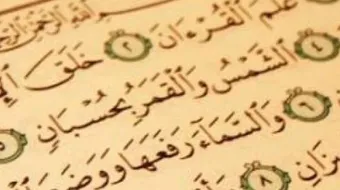 ٱللَّهِ ٱلرَّحْمَٰنِ ٱلرَّحِيمِ
عَلَّمَ ٱلْقُرْءَانَ ٢ خَلَقَ
٤ ٱلشَّمْسُ وَٱلْقَمَرُ بِحُسْبَانٍ ٥
٦ وَٱلسَّمَآءَ رَفَعَهَا وَوَضَعَ
يزَانِ ٨